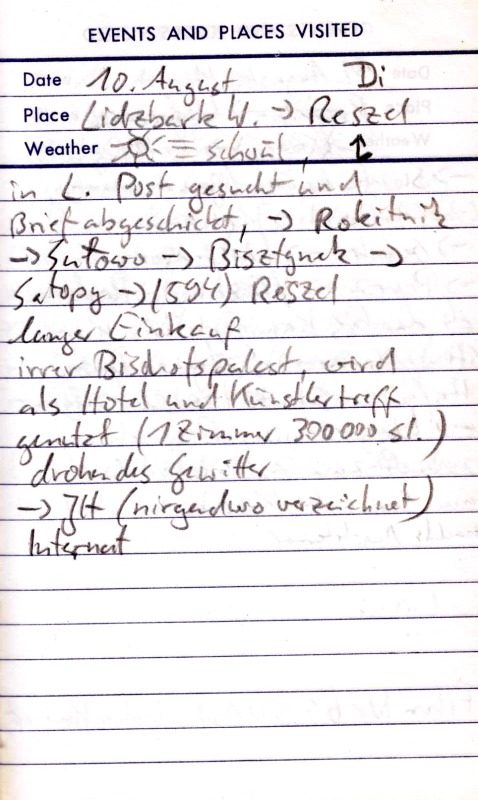 EVENTS AND PLACES VISITED
Date 10. August Di
Place Lidzbark W. → Reszel
Weather schwül, ↕
in L. Post gesucht und
Brief abgeschickt, → Rokitnik
→ Sułowo → Bisztynek →
Satopy → (594) Reszel
langer Einkauf
irrer Bischofspalast, wird
als Hotel und Künstlertreff
genutzt (1 Zimmer 300000 sl.)
drohendes Gewitter
→ JH (nirgendwo verzeichnet)
Internat